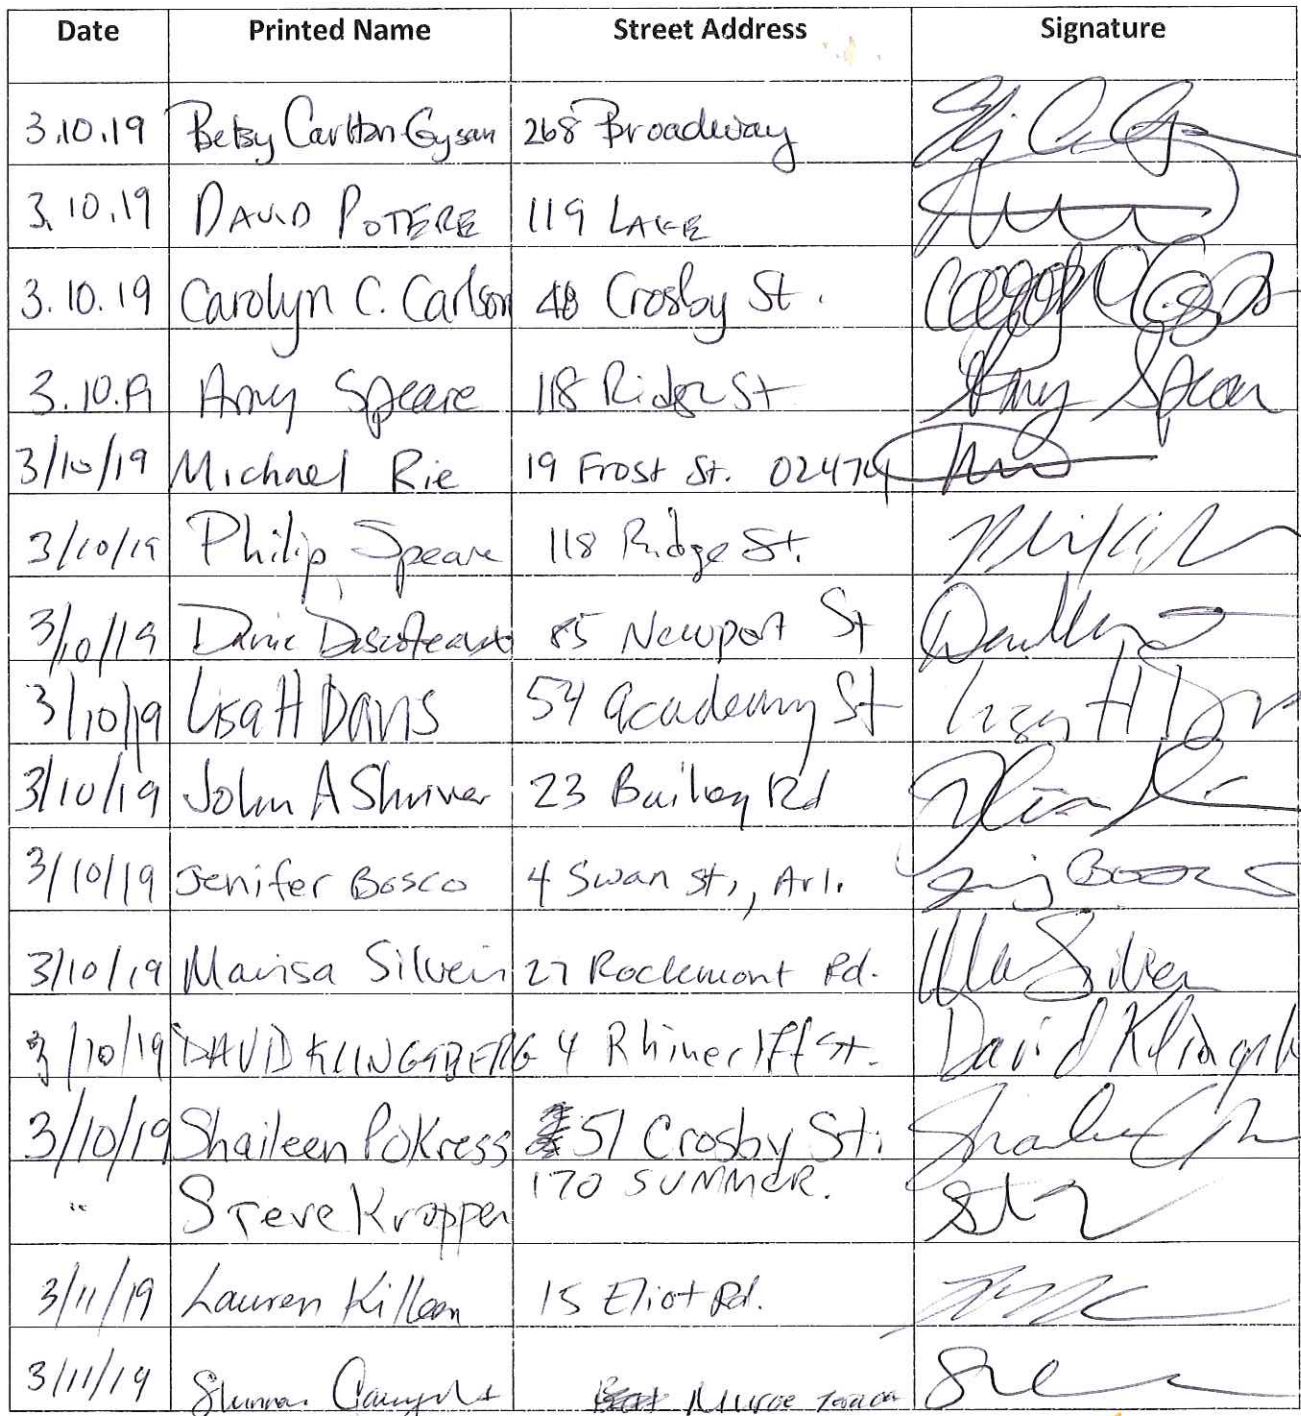 Date Printed Name Street Address Signature
3.10.19 Betsy Carlton-Gysan 268 Broadway
3.10.19 DAVID POTERE 119 LAKE
3.10.19 Carolyn C. Carlson 48 Crosby St.
3.10.19 Amy Speare 118 Ridge St Amy Spear
3/10/19 Michael Rie 19 Frost St. 02474
3/10/19 Philip Speare 118 Ridge St.
3/10/19 85 Newport St
3/10/19 Lisa H Davis 54 Academy St Lisa H
3/10/19 John A Shriver 23 Bailey Rd
3/10/19 Jenifer Bosco 4 Swan St., Arl.
3/10/19 Marisa Silveri 27 Rockmont Rd. Silveri
3/10/19 DAVID KLINGSBERG 4 Rhinecliff St. David
3/10/19 Shaileen Pokress 51 Crosby St.
" Steve Kropper 170 SUMMER.
3/11/19 Lauren Killeen 15 Eliot Rd.
3/11/19